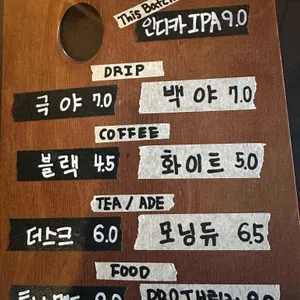 This Batch
인디카 IPA 9.0
DRIP
극야 7.0
백야 7.0
COFFEE
블랙 4.5
화이트 5.0
TEA / ADE
더스크 6.0
모닝듀 6.5
FOOD